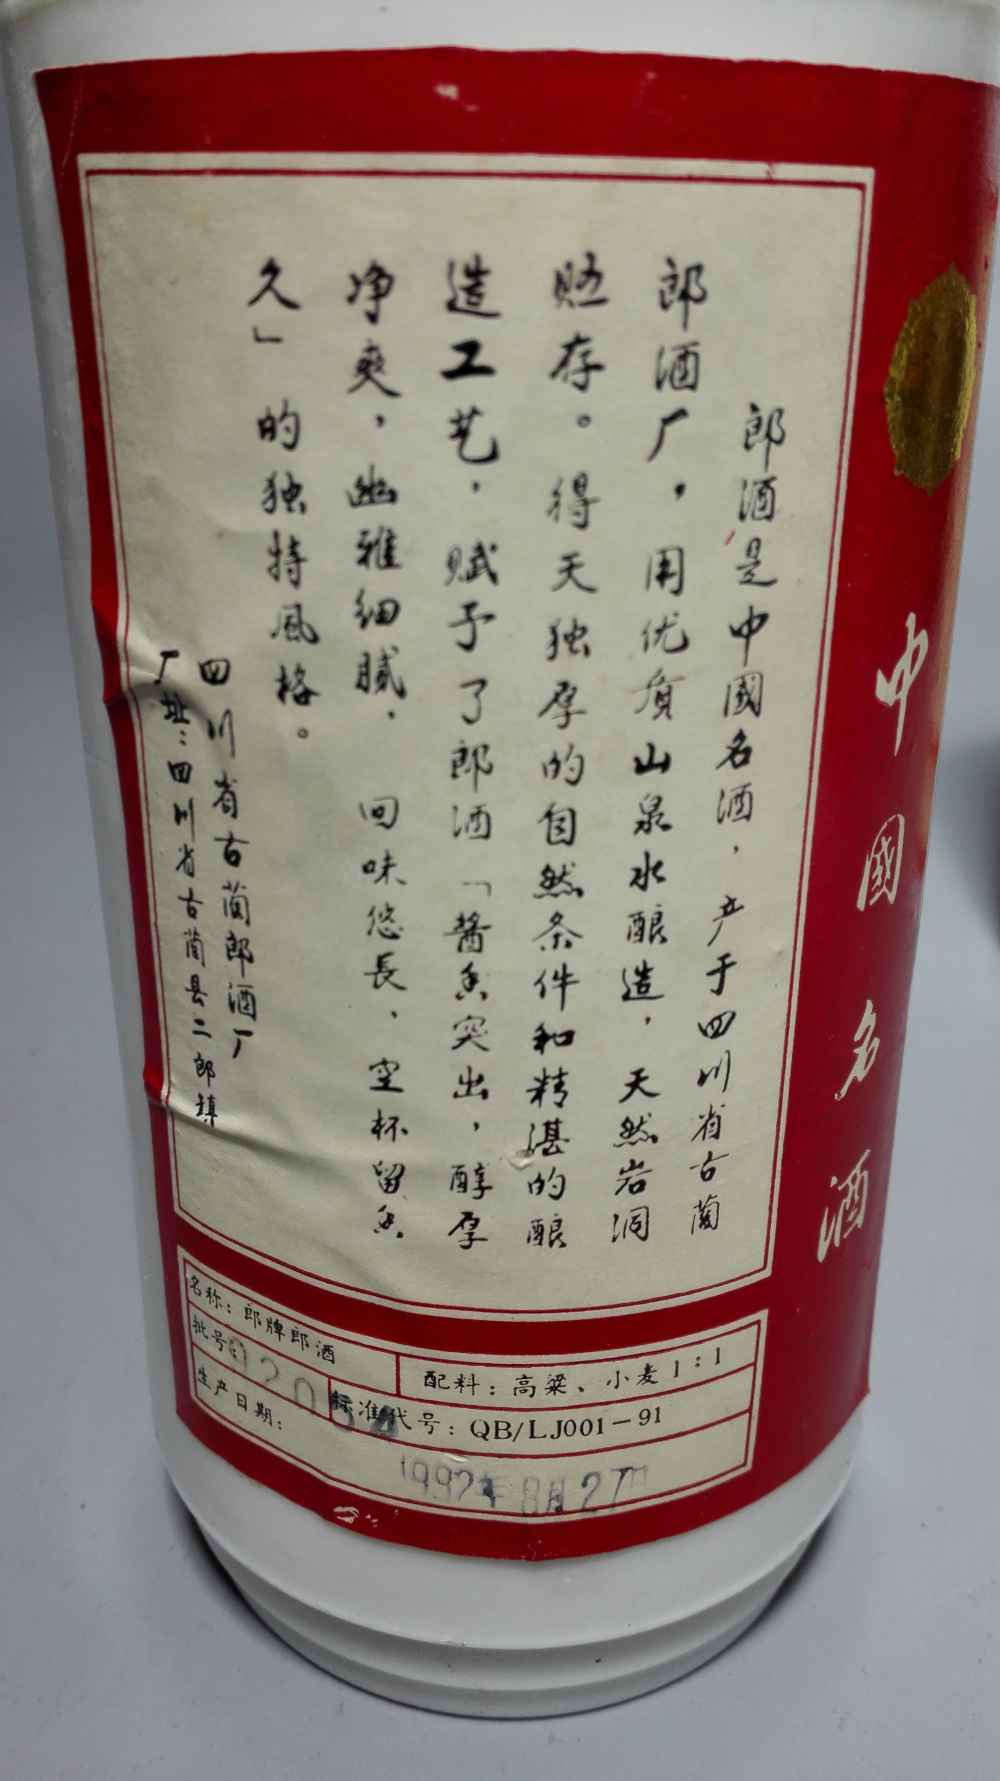 中國名酒
郎酒是中國名酒，产于四川省古蔺
郎酒厂，用优质山泉水酿造，天然岩洞
贮存。得天独厚的自然条件和精湛的酿
造工艺，赋予了郎酒「醬香突出，醇厚
净爽，幽雅细腻，回味悠長，空杯留香
久」的独特风格。
四川省古蔺郎酒厂
厂址：四川省古蔺县二郎镇
名称：郎牌郎酒
配料：高粱、小麦1：1
批号:
标准代号：QB/LJ001－91
生产日期：
1992年8月27日